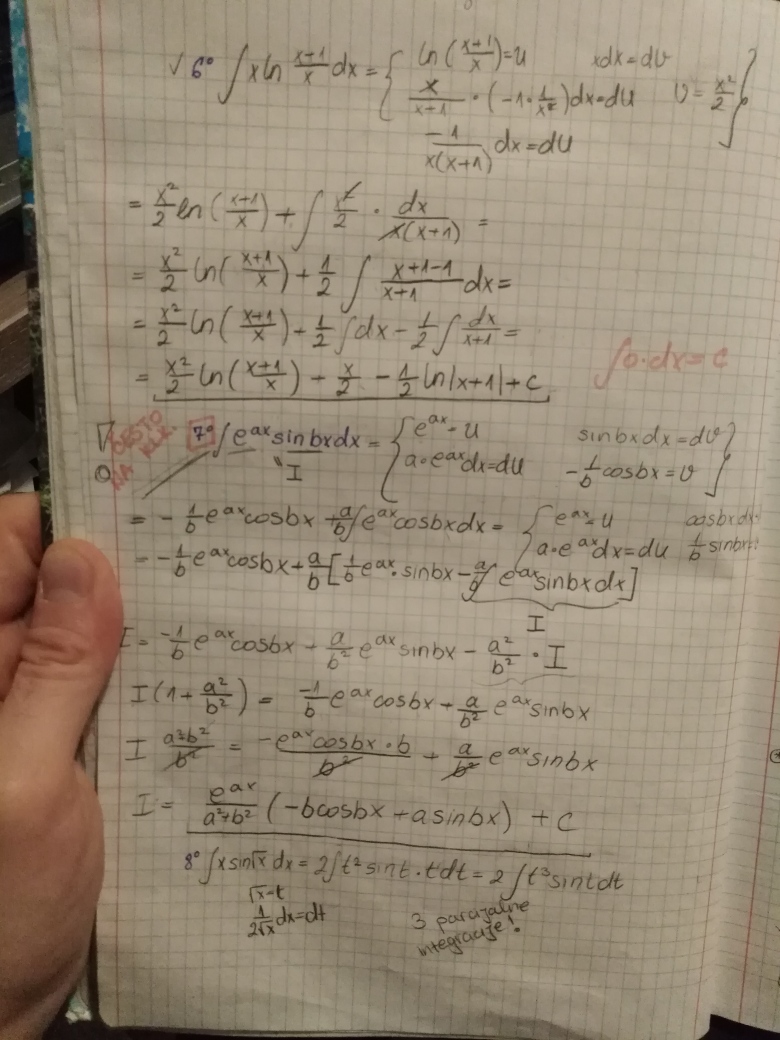 √ 6° ∫ x ln (x+1)/x dx = { ln((x+1)/x) = u xdx = dv
x/(x+1) · (-1 · 1/x²)dx = du v = x²/2 }
-1/(x(x+1)) dx = du
= x²/2 ln((x+1)/x) + ∫ x²/2 · dx/(x(x+1)) =
= x²/2 ln((x+1)/x) + 1/2 ∫ (x+1-1)/(x+1) dx =
= x²/2 ln((x+1)/x) + 1/2 ∫dx - 1/2 ∫ dx/(x+1) =
= x²/2 ln((x+1)/x) + x/2 - 1/2 ln|x+1| + C
∫0·dx = C
ČESTO NA KLK.
7° ∫ e^ax sinbxdx = { e^ax = u sinbxdx = dv
I a·e^ax dx = du -1/b cosbx = v }
= -1/b e^ax cosbx + a/b ∫ e^ax cosbxdx = { e^ax = u cosbxdx
= -1/b e^ax cosbx + a/b [1/b e^ax · sinbx - a/b ∫ e^ax sinbxdx] a·e^ax dx = du 1/b sinbx
I
I = -1/b e^ax cosbx + a/b² e^ax sinbx - a²/b² · I
I(1 + a²/b²) = -1/b e^ax cosbx + a/b² e^ax sinbx
I (a²+b²)/b² = (-e^ax cosbx · b)/b² + a/b² e^ax sinbx
I = e^ax/(a²+b²) (-bcosbx + asinbx) + C
8° ∫ x sin√x dx = 2∫t² sint · tdt = 2∫t³ sintdt
√x = t
1/(2√x) dx = dt
3 parcijalne
integracije!